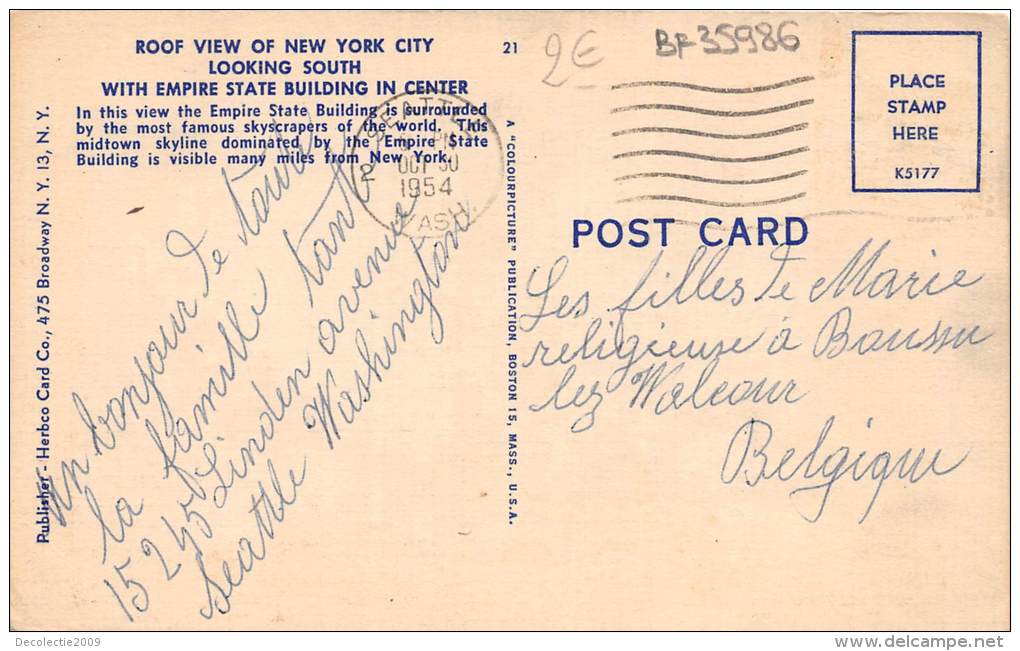 ROOF VIEW OF NEW YORK CITY
LOOKING SOUTH
WITH EMPIRE STATE BUILDING IN CENTER
In this view the Empire State Building is surrounded
by the most famous skyscrapers of the world. This
midtown skyline dominated by the Empire State
Building is visible many miles from New York.
21
2€
BF35986
SEATTLE
PM
OCT 30
1954
WASH.
2
PLACE
STAMP
HERE
K5177
POST CARD
Publisher - Herbco Card Co., 475 Broadway N. Y. 13, N. Y.
A "COLOURPICTURE" PUBLICATION, BOSTON 15, MASS., U.S.A.
un bonjour de toute
la famille
15245 Linden avenue
Seattle Washington
Les filles de Marie
religieuse à Boussu
lez Walcour
Belgique
Decolectie2009
www.delcampe.net